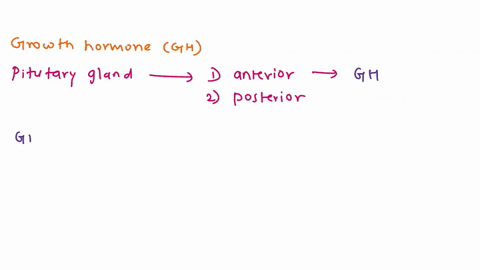 Growth hormone (GH)
Pitutary gland → 1) anterior → GH
2) posterior
GI